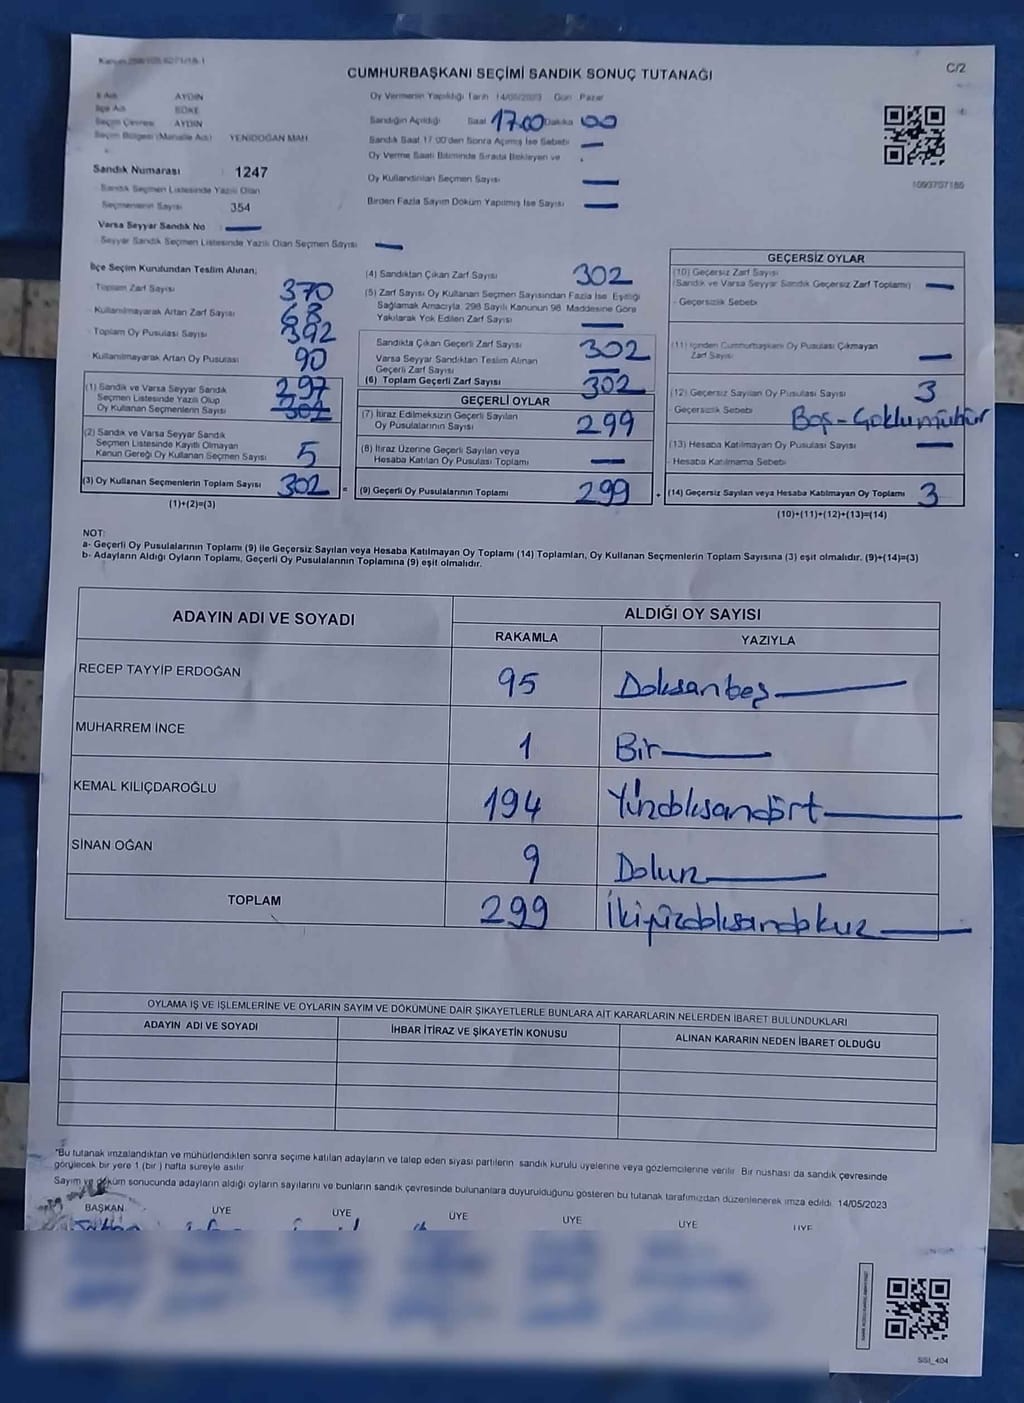 CUMHURBAŞKANI SEÇİMİ SANDIK SONUÇ TUTANAĞI
C/2
İl Adı AYDIN
İlçe Adı SÖKE
Seçim Çevresi AYDIN
Seçim Bölgesi (Mahalle Adı) YENİDOĞAN MAH.
Sandık Numarası 1247
Sandık Seçmen Listesinde Yazılı Olan
Seçmenlerin Sayısı 354
Varsa Seyyar Sandık No —
Seyyar Sandık Seçmen Listesinde Yazılı Olan Seçmen Sayısı —
Oy Vermenin Yapıldığı Tarih 14/05/2023 Gün Pazar
Sandığın Açıldığı Saat 17.00 Dakika 00
Sandık Saat 17.00'den Sonra Açılmış İse Sebebi —
Oy Verme Saati Bitiminde Sırada Bekleyen ve
Oy Kullandırılan Seçmen Sayısı —
Birden Fazla Sayım Döküm Yapılmış İse Sayısı —
1093707185
İlçe Seçim Kurulundan Teslim Alınan;
Toplam Zarf Sayısı 370
Kullanılmayarak Artan Zarf Sayısı 68
Toplam Oy Pusulası Sayısı 392
Kullanılmayarak Artan Oy Pusulası 90
(1) Sandık ve Varsa Seyyar Sandık
Seçmen Listesinde Yazılı Olup
Oy Kullanan Seçmenlerin Sayısı 297 302
(2) Sandık ve Varsa Seyyar Sandık
Seçmen Listesinde Kayıtlı Olmayan
Kanun Gereği Oy Kullanan Seçmen Sayısı 5
(3) Oy Kullanan Seçmenlerin Toplam Sayısı 302
(1)+(2)=(3)
(4) Sandıktan Çıkan Zarf Sayısı 302
(5) Zarf Sayısı Oy Kullanan Seçmen Sayısından Fazla İse, Eşitliği
Sağlamak Amacıyla, 298 Sayılı Kanunun 98. Maddesine Göre
Yakılarak Yok Edilen Zarf Sayısı —
Sandıkta Çıkan Geçerli Zarf Sayısı 302
Varsa Seyyar Sandıktan Teslim Alınan
Geçerli Zarf Sayısı —
(6) Toplam Geçerli Zarf Sayısı 302
GEÇERLİ OYLAR
(7) İtiraz Edilmeksizin Geçerli Sayılan
Oy Pusulalarının Sayısı 299
(8) İtiraz Üzerine Geçerli Sayılan veya
Hesaba Katılan Oy Pusulası Toplamı —
= (9) Geçerli Oy Pusulalarının Toplamı 299
GEÇERSİZ OYLAR
(10) Geçersiz Zarf Sayısı
(Sandık ve Varsa Seyyar Sandık Geçersiz Zarf Toplamı) —
Geçersizlik Sebebi
(11) İçinden Cumhurbaşkanı Oy Pusulası Çıkmayan
Zarf Sayısı —
(12) Geçersiz Sayılan Oy Pusulası Sayısı 3
Geçersizlik Sebebi Boş-Çoklu mühür
(13) Hesaba Katılmayan Oy Pusulası Sayısı —
Hesaba Katılmama Sebebi
+ (14) Geçersiz Sayılan veya Hesaba Katılmayan Oy Toplamı 3
(10)+(11)+(12)+(13)=(14)
NOT:
a- Geçerli Oy Pusulalarının Toplamı (9) ile Geçersiz Sayılan veya Hesaba Katılmayan Oy Toplamı (14) Toplamları, Oy Kullanan Seçmenlerin Toplam Sayısına (3) eşit olmalıdır. (9)+(14)=(3)
b- Adayların Aldığı Oyların Toplamı, Geçerli Oy Pusulalarının Toplamına (9) eşit olmalıdır.
ADAYIN ADI VE SOYADI ALDIĞI OY SAYISI
RAKAMLA YAZIYLA
RECEP TAYYİP ERDOĞAN 95 Doksanbeş
MUHARREM İNCE 1 Bir
KEMAL KILIÇDAROĞLU 194 Yüzdoksandört
SİNAN OĞAN 9 Dokuz
TOPLAM 299 İkiyüzdoksandokuz
OYLAMA İŞ VE İŞLEMLERİNE VE OYLARIN SAYIM VE DÖKÜMÜNE DAİR ŞİKAYETLERLE BUNLARA AİT KARARLARIN NELERDEN İBARET BULUNDUKLARI
ADAYIN ADI VE SOYADI İHBAR İTİRAZ VE ŞİKAYETİN KONUSU ALINAN KARARIN NEDEN İBARET OLDUĞU
*Bu tutanak imzalandıktan ve mühürlendikten sonra seçime katılan adayların ve talep eden siyasi partilerin sandık kurulu üyelerine veya gözlemcilerine verilir. Bir nüshası da sandık çevresinde
görülecek bir yere 1 (bir) hafta süreyle asılır.
Sayım ve döküm sonucunda adayların aldığı oyların sayılarını ve bunların sandık çevresinde bulunanlara duyurulduğunu gösteren bu tutanak tarafımızdan düzenlenerek imza edildi. 14/05/2023
BAŞKAN ÜYE ÜYE ÜYE ÜYE ÜYE ÜYE
SSİ_404